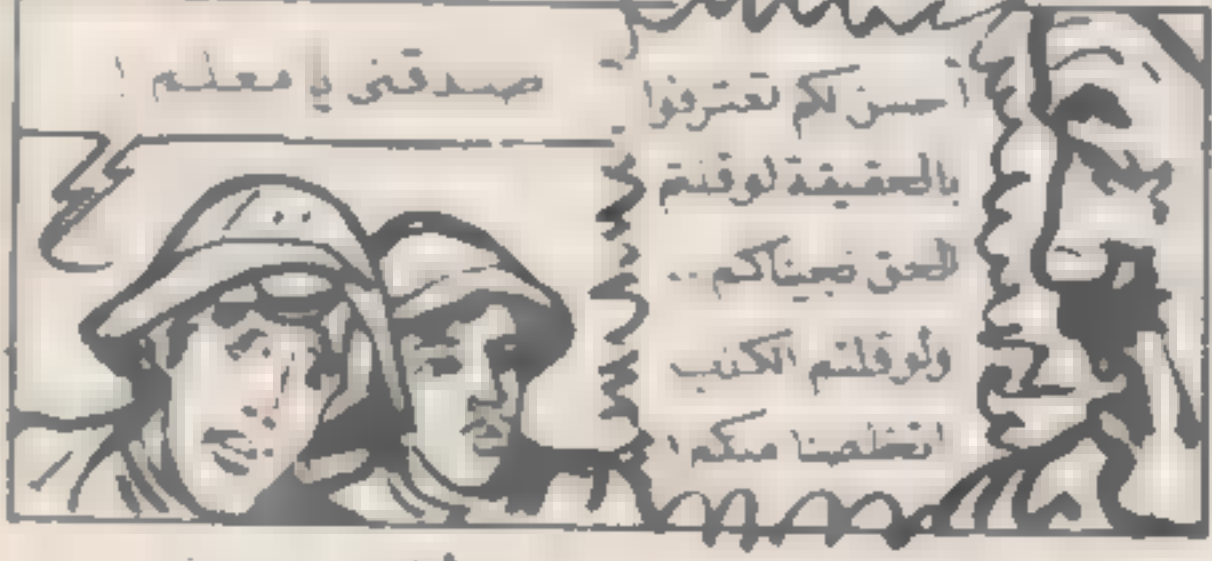 أحسن لكم تعترفوا
بالحقيقة لو قلتم
الحق نجيناكم ..
ولو قلتم الكذب
اتخلصنا منكم !
صدقني يا معلم !